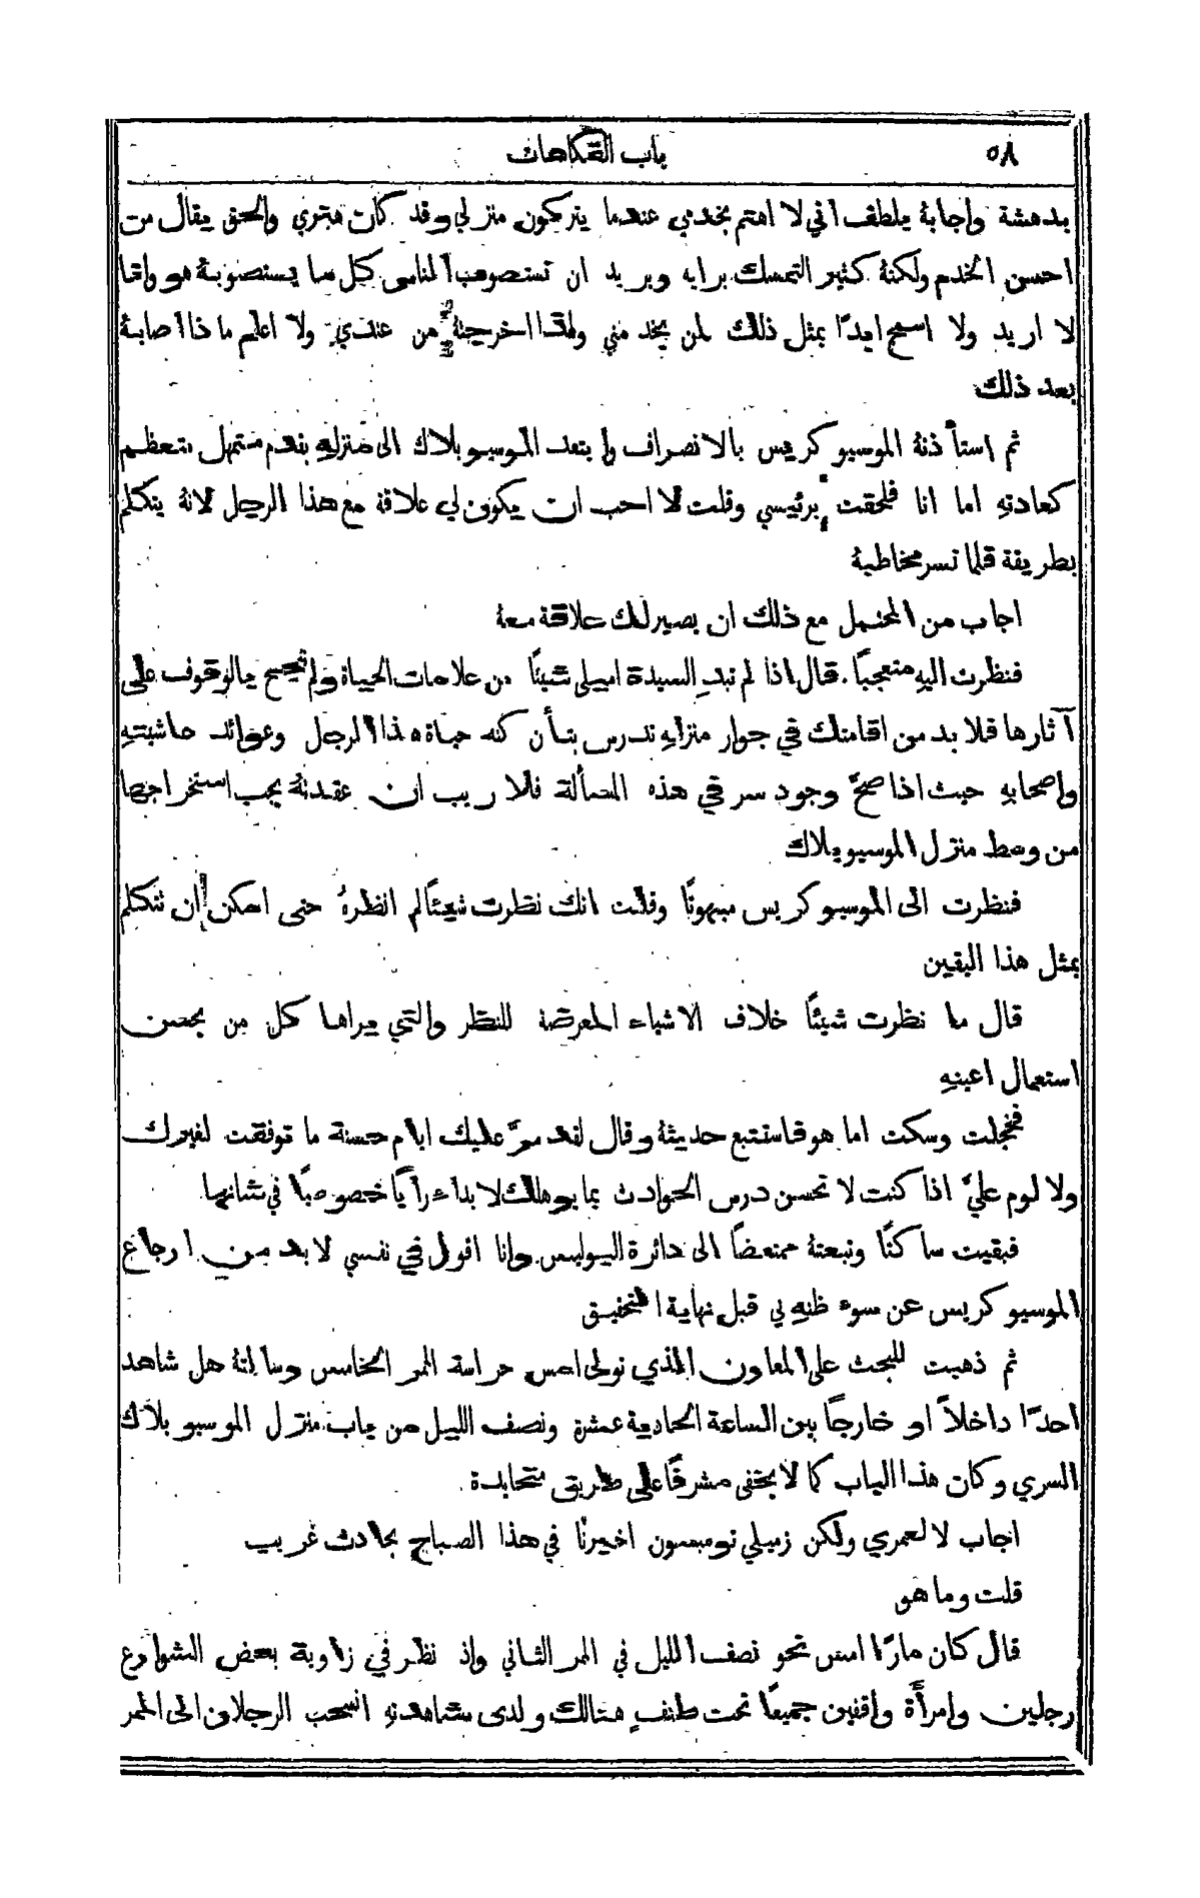 ٥٨
باب الفكاهات
بدهشة واجابهُ بلطف اني لا اهتم بخدمي عندما يتركون منزلي وقد كانت هنري والحق يقال من
احسن الخدم ولكنهُ كثير التمسك برايه ويريد ان تستصوب الناس كل ما يستصوبهُ هو وانا
لا اريد ولا اسمح ابدًا بمثل ذلك لمن يخدمني ولهذا اخرجتهُ من عندي ولا اعلم ماذا اصابهُ
بعد ذلك
ثم استأذنهُ الموسيو كريس بالانصراف وابتعد الموسيو بلاك الى منزلهِ بقدم متمهل متعظم
كعادتهِ اما انا فلحقت برئيسي وقلت لا احب ان يكون لي علاقة مع هذا الرجل لانهُ يتكلم
بطريقة قلما تسر مخاطبهُ
اجاب من المحتمل مع ذلك ان يصير لك علاقة معهُ
فنظرت اليهِ متعجبًا. قال اذا لم تبدِ السيدة اميلي شيئًا من علامات الحياة ولم ننجح بالوقوف على
آثارها فلا بد من اقامتك في جوار منزلهِ تدرس بتأن كنه حياة هذا الرجل وعوائد حاشيتهِ
واصحابهِ حيث اذا صحَّ وجود سر في هذه المسألة فلا ريب ان عقدتهُ يجب استخراجها
من وسط منزل الموسيو بلاك
فنظرت الى الموسيو كريس مبهوتًا وقلت انك نظرت شيئًا لم انظرهُ حتى امكن ان تتكلم
بمثل هذا اليقين
قال ما نظرت شيئًا خلاف الاشياء المعرضة للنظر والتي يراها كل من يحسن
استعمال اعينهِ
فخجلت وسكت اما هو فاستتبع حديثهُ وقال لقد مرَّ عليك ايام حسنة ما توفقت لغيرك
ولا لوم عليَّ اذا كنت لا تحسن درس الحوادث بما يوهلك لابداء رأيًا خصوصيًا في شانها
فبقيت ساكتًا وتبعتهُ ممتعضًا الى دائرة البوليس وانا اقول في نفسي لا بد من ارجاع
الموسيو كريس عن سوء ظنهِ بي قبل نهاية التحقيق
ثم ذهبت للبحث على المعاون الذي تولى امس حراسة الممر الخامس وسالتهُ هل شاهد
احدًا داخلاً او خارجًا بين الساعة الحادية عشرة ونصف الليل من باب منزل الموسيو بلاك
السري وكان هذا الباب كما لا يخفى مشرفًا على طريق متحايدة
اجاب لا لعمري ولكن زميلي تومسون اخبرنا في هذا الصباح بحادث غريب
قلت وما هو
قال كان مارًا امس نحو نصف الليل في الممر الثاني واذ نظر في زاوية بعض الشوارع
رجلين وامرأة واقفين جميعًا تحت طنف هنالك ولدى مشاهدتهِ انسحب الرجلان الى الممر